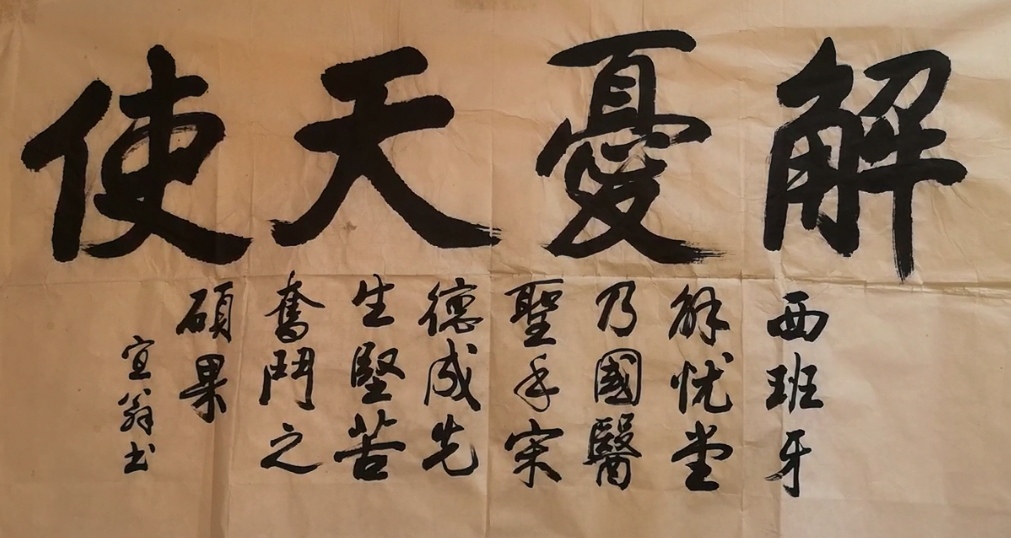 解憂天使
西班牙
解忧堂
乃國醫
聖手宋
德成先
生堅苦
奮鬥之
碩果
宜翁书